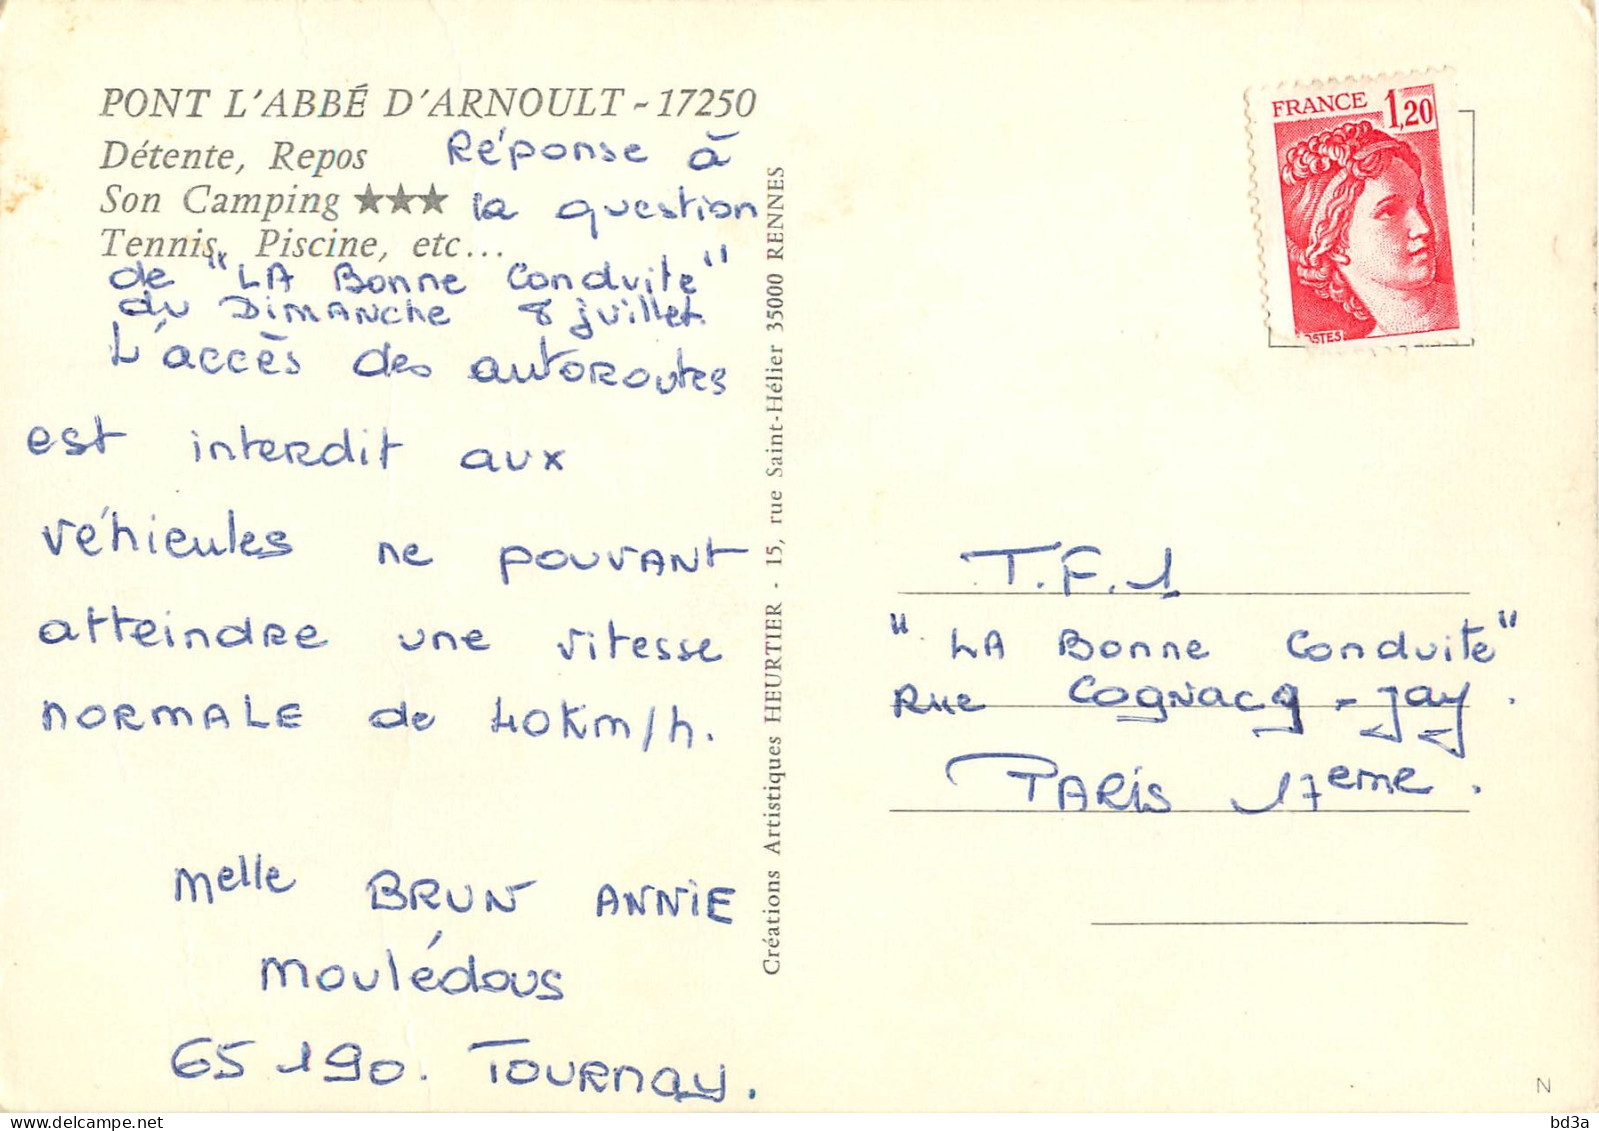 PONT L'ABBÉ D'ARNOULT - 17250
Détente, Repos
Son Camping ★★★
Tennis, Piscine, etc...
Réponse à
la question
de "LA Bonne Conduite"
du DIMANche 8 juillet.
L'accès des autoroutes
est interdit aux
véhicules ne pouvant
atteindre une vitesse
NORMALE de 40Km/h.
Melle BRUN ANNIE
Moulédous
65190. TOURNAY.
Créations Artistiques HEURTIER - 15, rue Saint-Hélier 35000 RENNES
FRANCE 1,20
OSTES
T.F.1
"LA Bonne Conduite"
Rue COGNACq-Jay.
PARIS 17eme.
N
bd3a